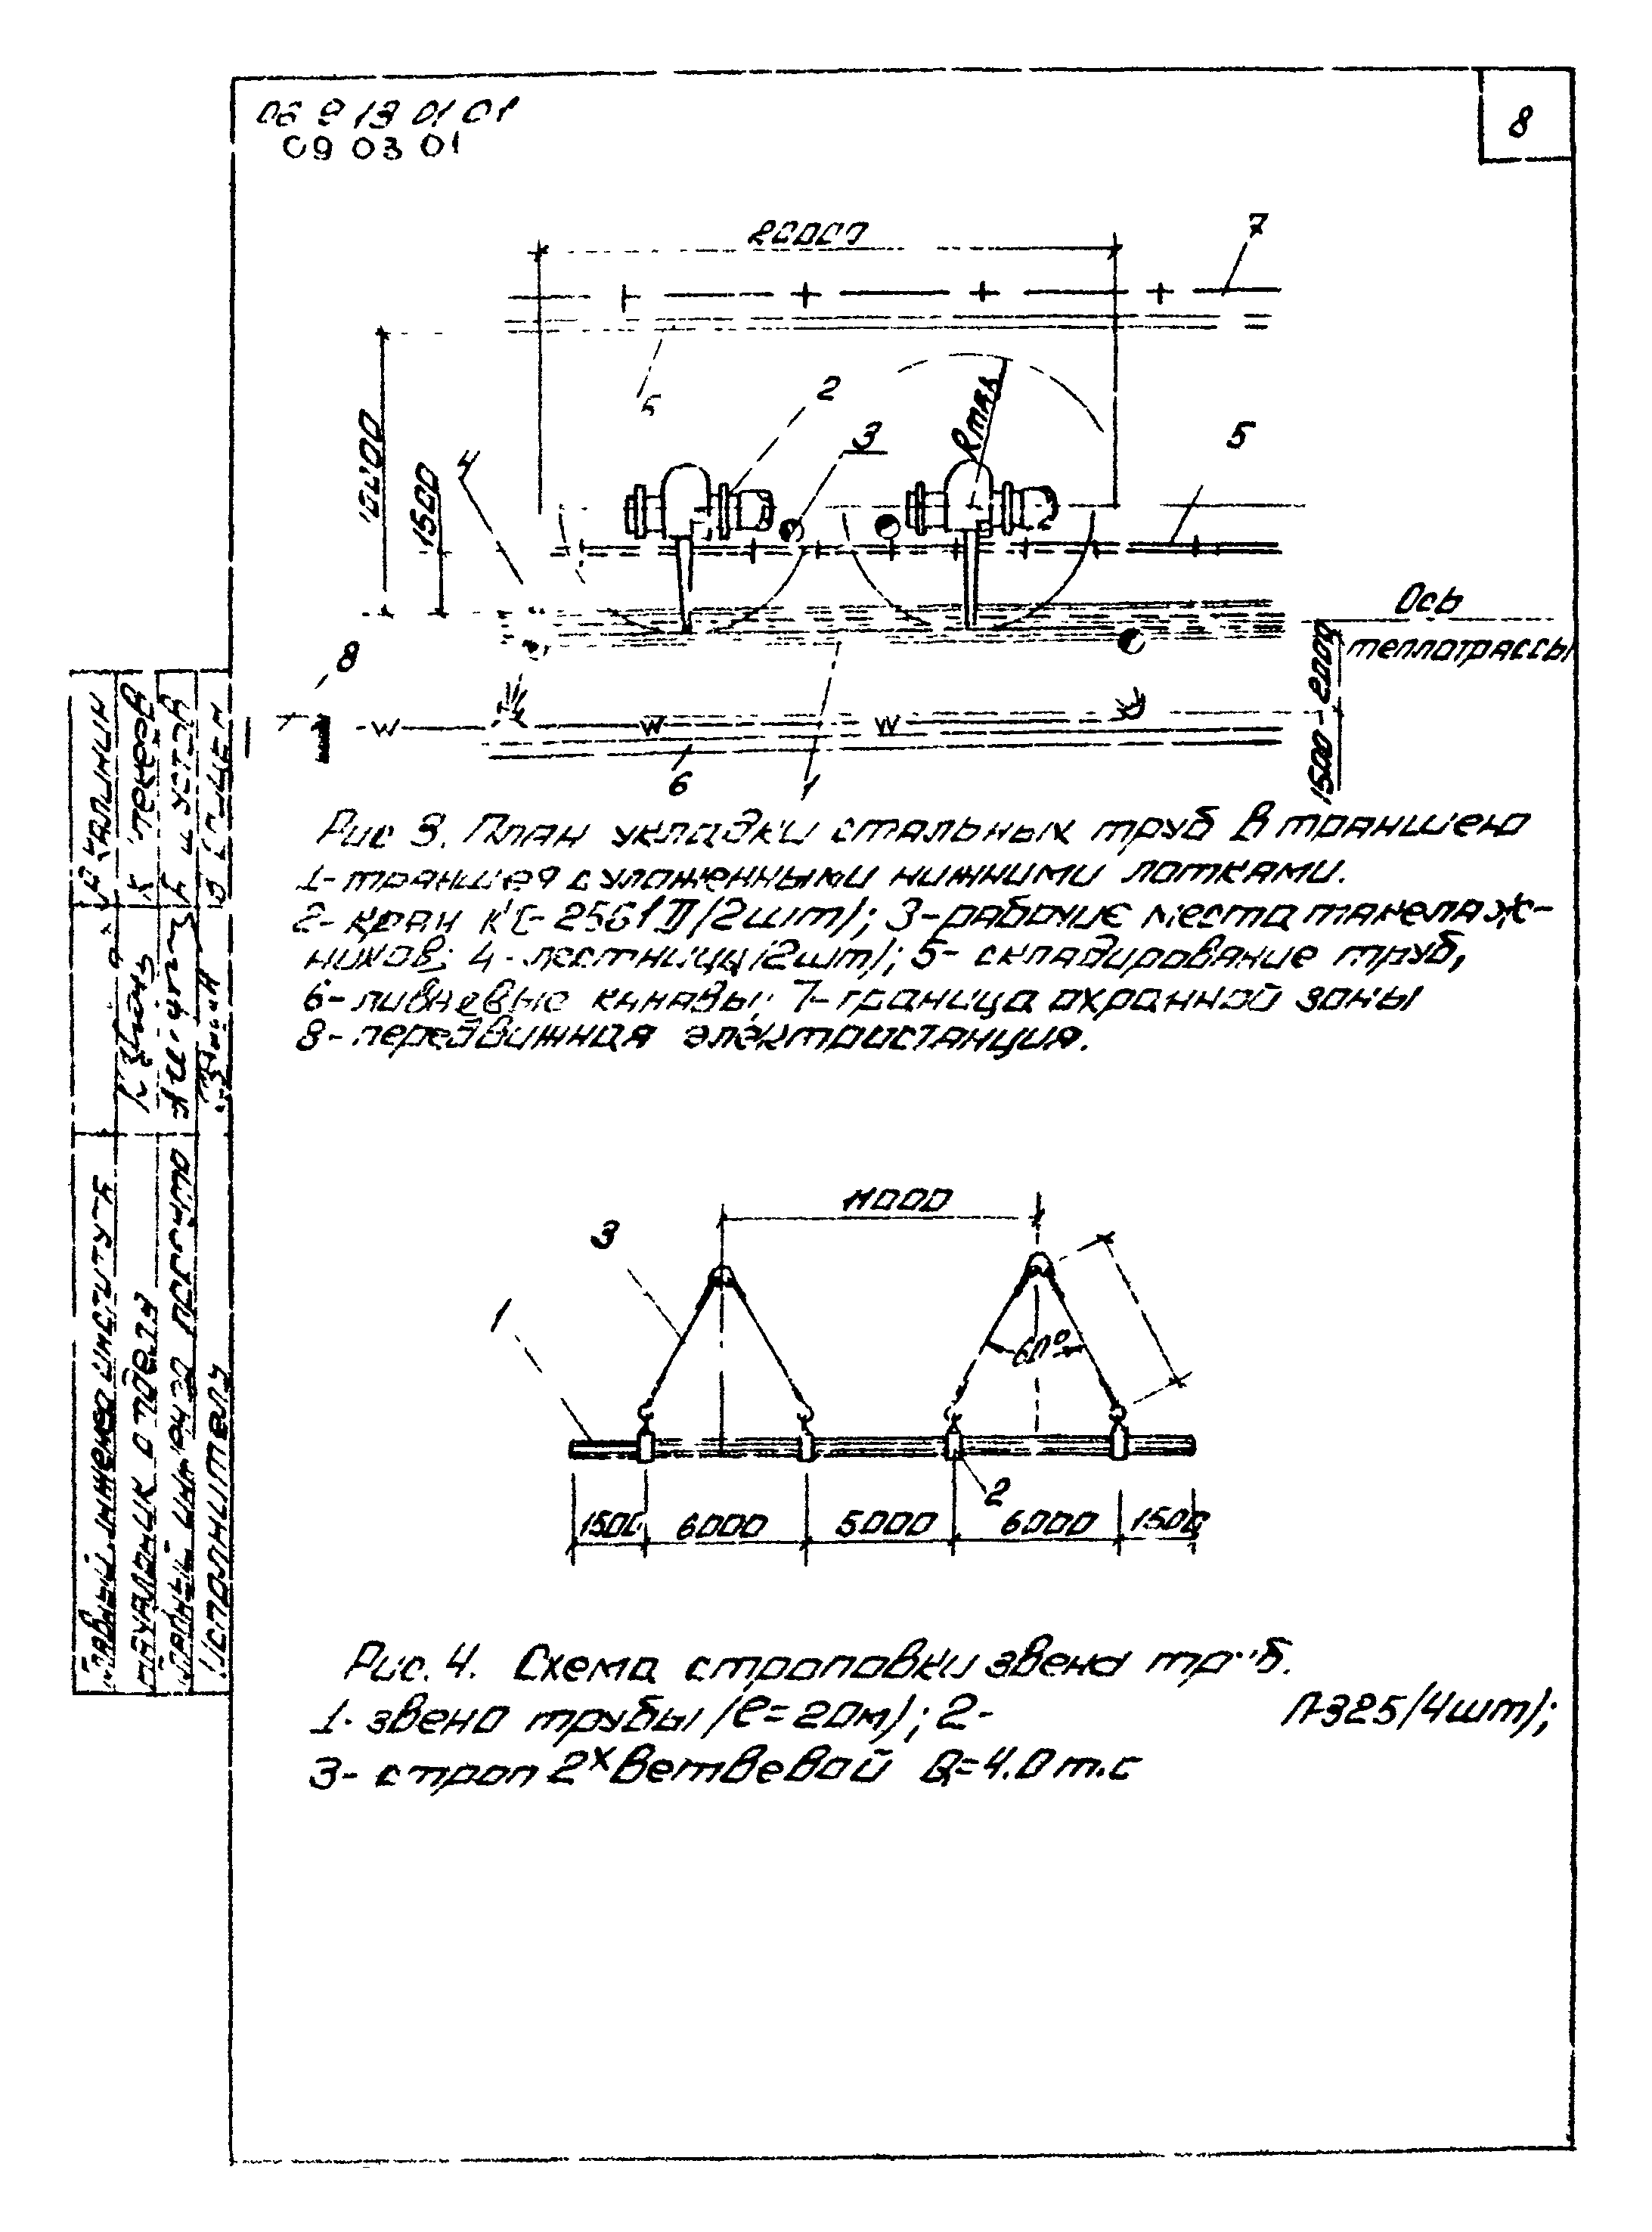 06 9 13 01 01
09 03 01
8
20000
7
6
2
3
Rmax
5
4
1500
Ось
теплотрассы
8
1500-2000
6
1
Рис 3. План укладки стальных труб в траншею
1- траншея с уложенными нижними лотками.
2- кран КС-2561Д/2шт); 3-рабочие места такелаж-
ников; 4-лестницы/2шт); 5- складирование труб,
6- ливневые канавы; 7-граница охранной зоны
8- передвижная электростанция.
11000
3
1
60°
2
1500 6000 5000 6000 1500
Рис. 4. Схема строповки звена труб.
1- звено трубы /ℓ=20м); 2- П-325/4шт);
3- строп 2х ветвевой Q=4.0 т.с
Главный инженер института
Начальник отдела
Исполнитель